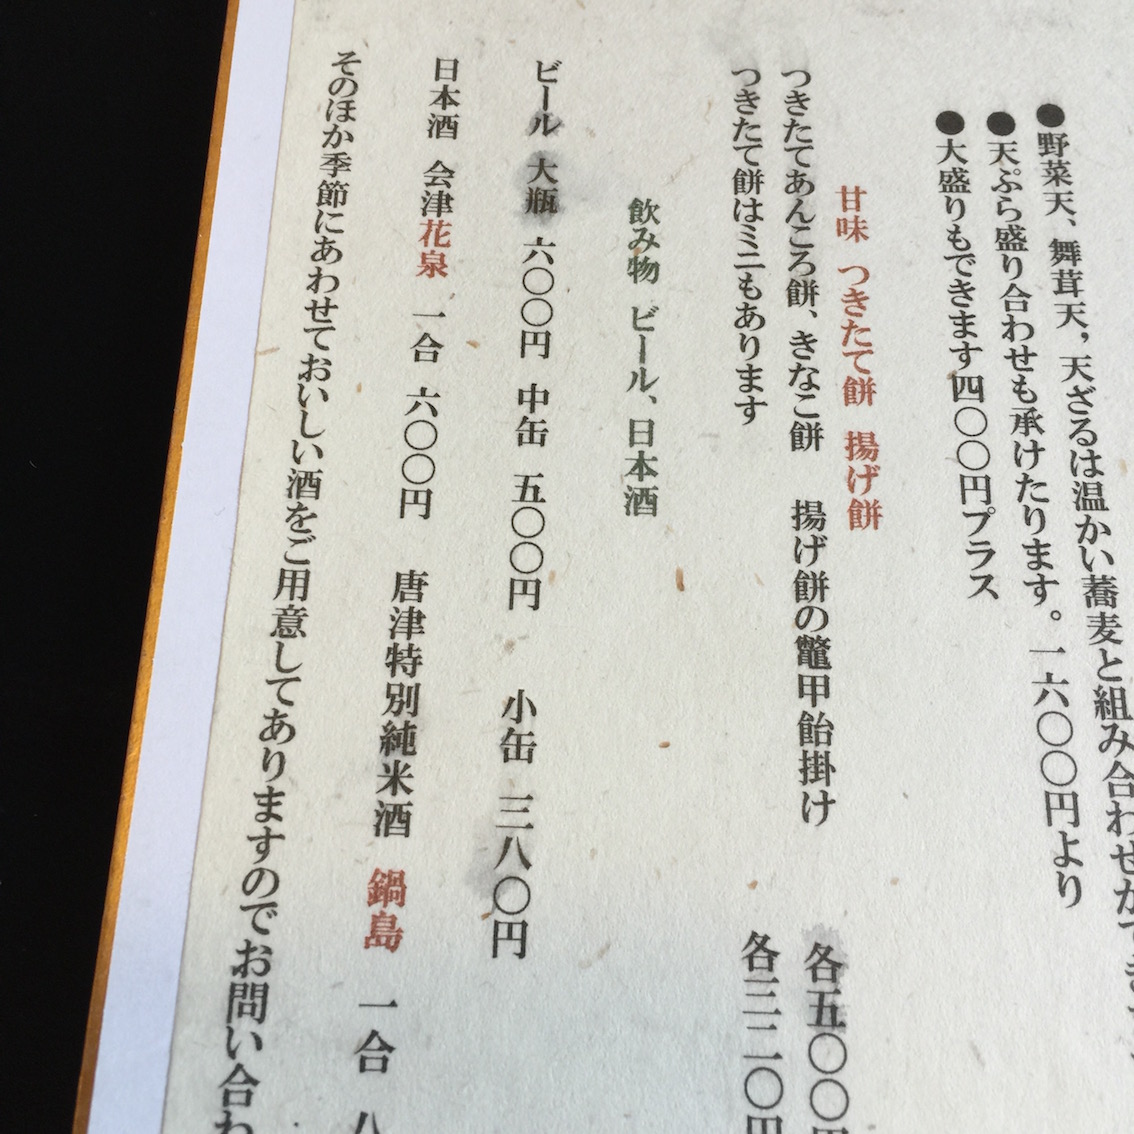 ●野菜天、舞茸天，天ざるは温かい蕎麦と組み合わせができ
●天ぷら盛り合わせも承けたります。一六〇〇円より
●大盛りもできます四〇〇円プラス
甘味 つきたて餅 揚げ餅
つきたてあんころ餅、きなこ餅 揚げ餅の鼈甲飴掛け 各五〇〇円
つきたて餅はミニもあります 各三二〇円
飲み物 ビール、日本酒
ビール 大瓶 六〇〇円 中缶 五〇〇円 小缶 三八〇円
日本酒 会津花泉 一合 六〇〇円 唐津特別純米酒 鍋島 一合 八
そのほか季節にあわせておいしい酒をご用意してありますのでお問い合わ